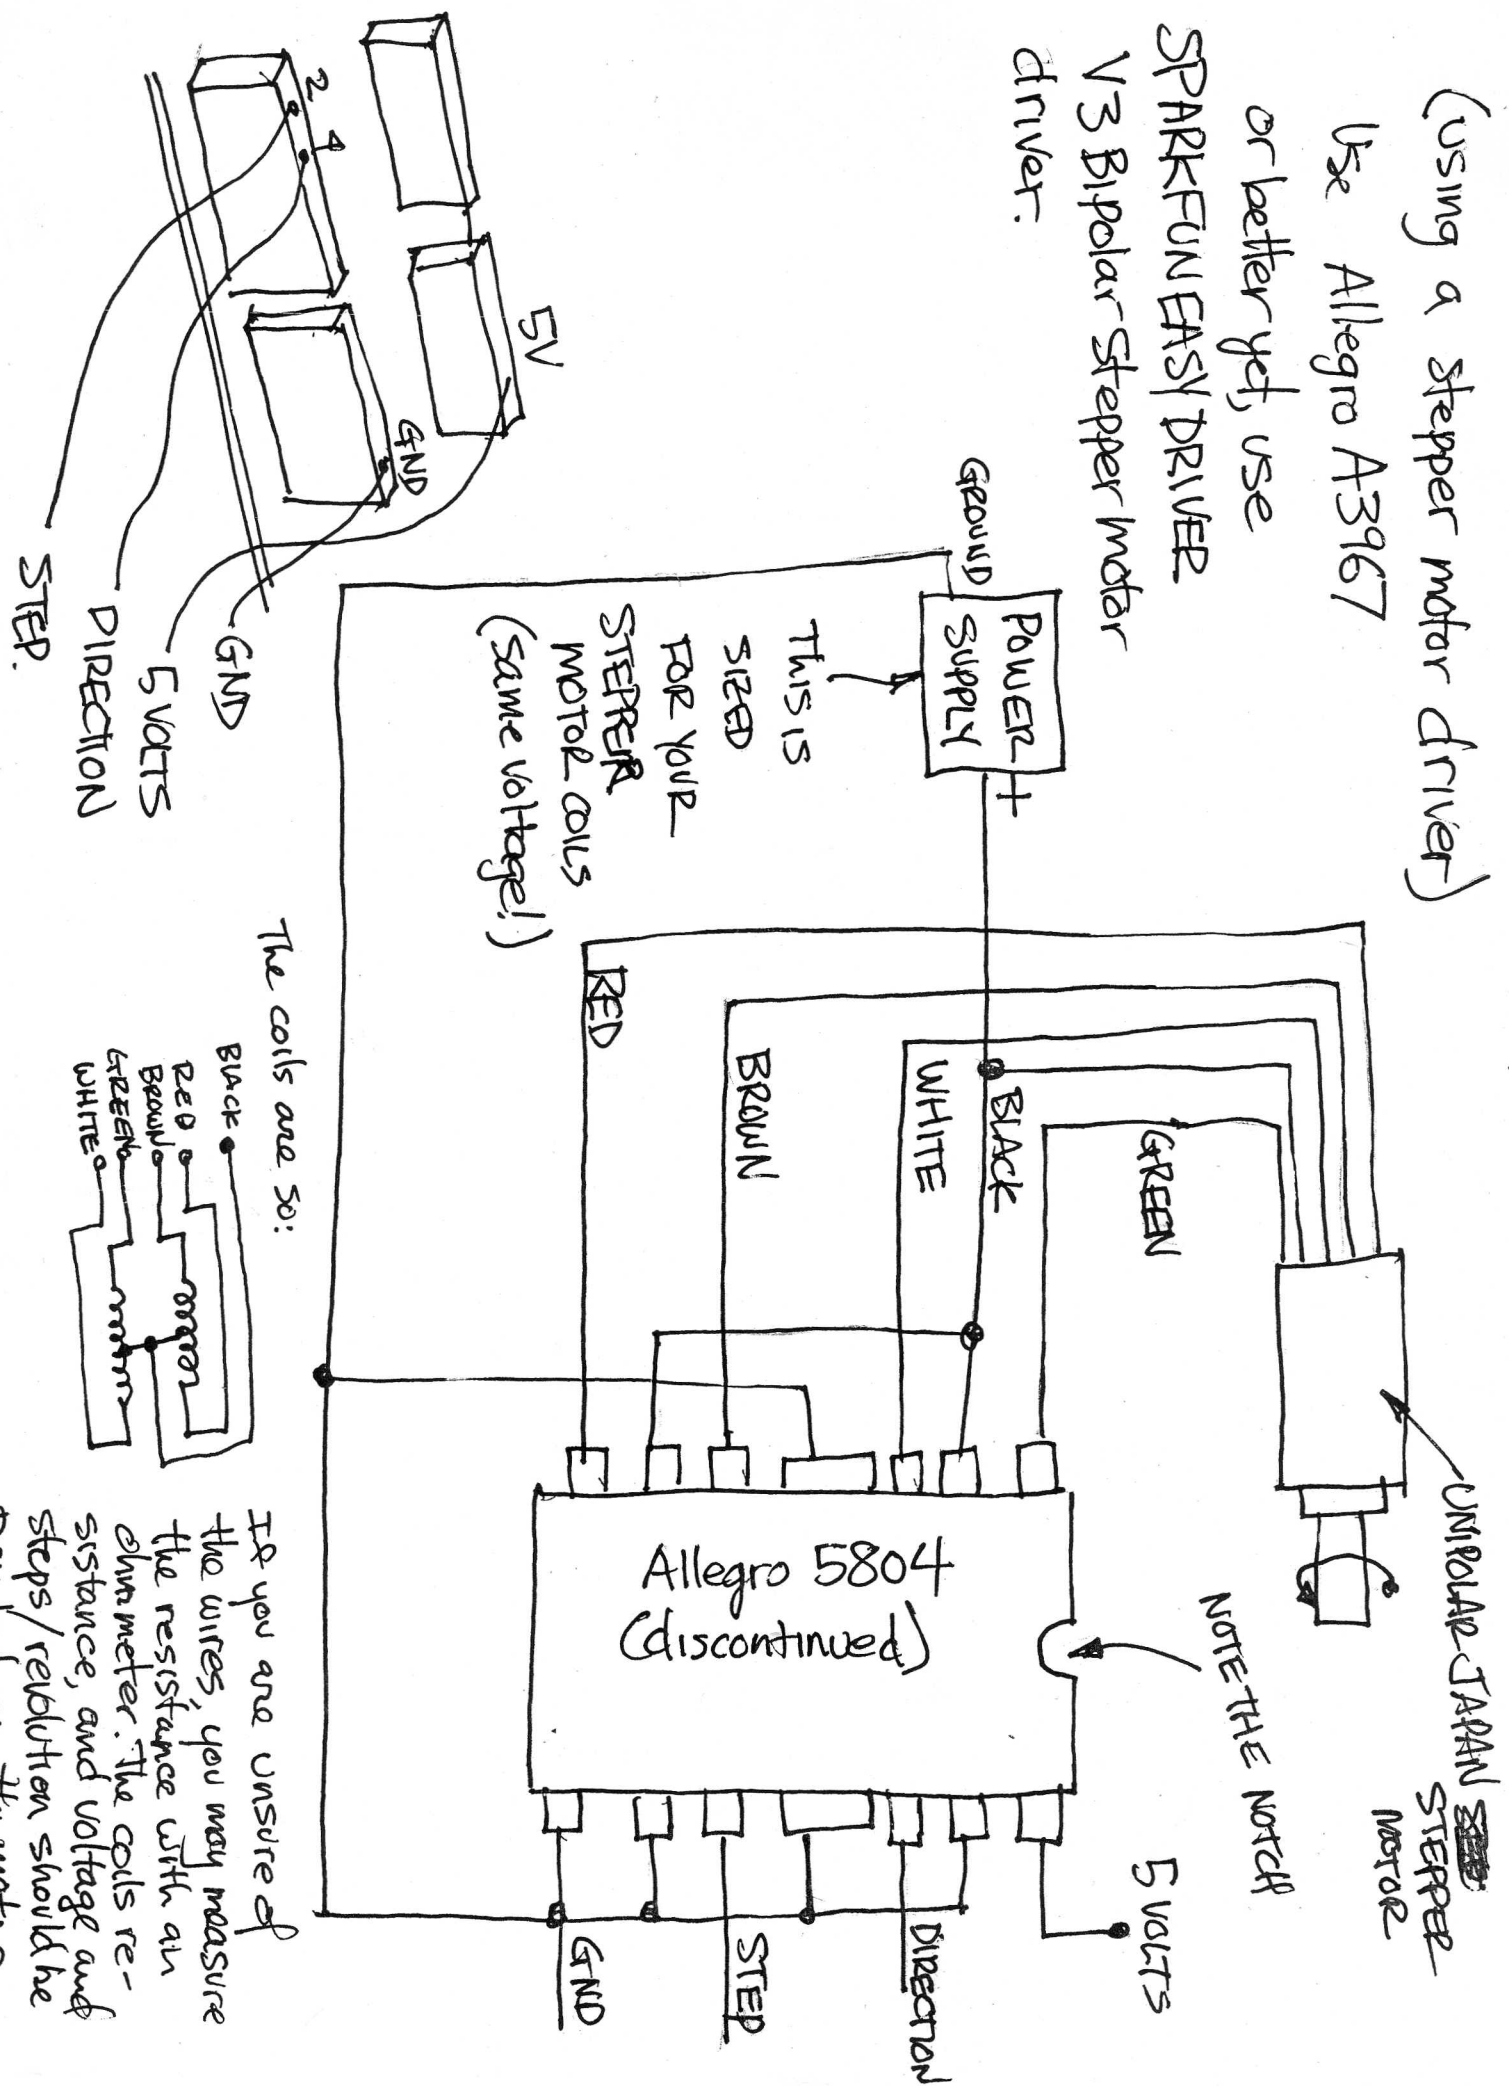 (using a stepper motor driver)
Use Allegro A3967
or better yet, use
SPARKFUN EASYDRIVER
V3 Bipolar Stepper motor
driver.
2
4
5V
GND
STEP.
DIRECTION
5 VOLTS
GND
GROUND
POWER
SUPPLY
+
This is
SIZED
FOR YOUR
STEPPER
MOTOR COILS
(same voltage!)
RED
BROWN
WHITE
BLACK
GREEN
UNIPOLAR JAPAN
STEPPER
MOTOR
NOTE THE NOTCH
Allegro 5804
(discontinued)
5 VOLTS
DIRECTION
STEP
GND
The coils are so:
BLACK
RED
BROWN
GREEN
WHITE
If you are unsure of
the wires, you may measure
the resistance with an
ohmmeter. The coils re-
sistance, and voltage and
steps/revolution should be